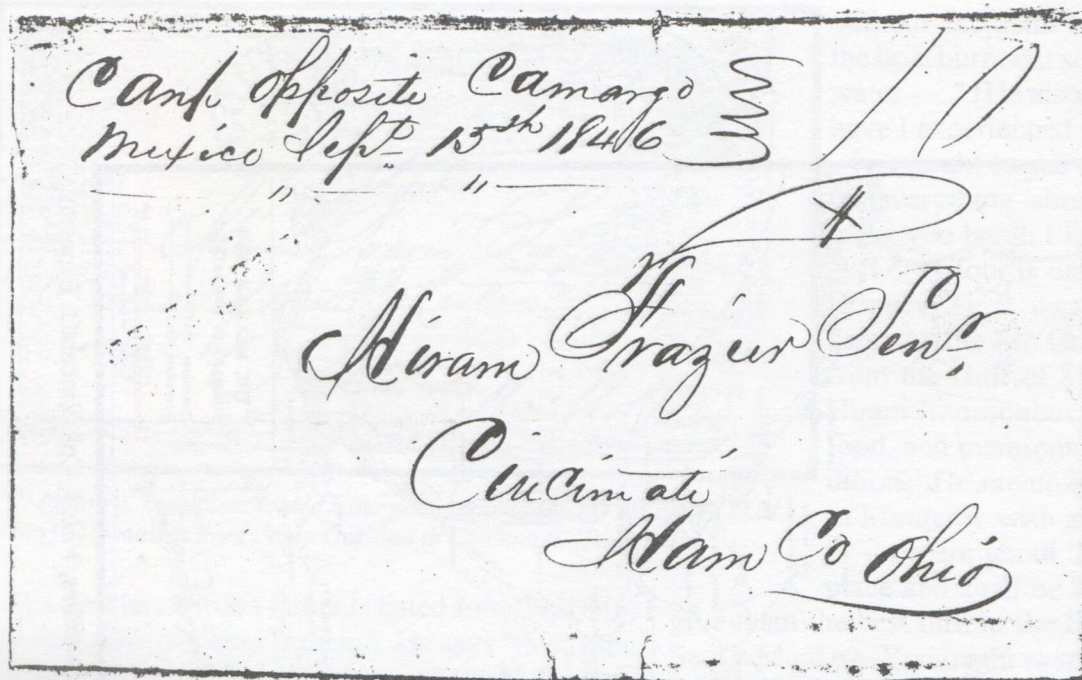 Camp Opposite Camargo 10
Mexico Sept. 15th 1846
" "
Hiram Frazier Senr.
Cincinati
Ham Co Ohio